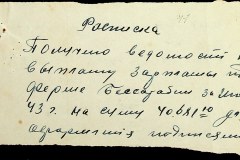 Расписка
Получено ведомость н
выплату зарплаты п
ферме Бессарабии за
43 г. на сумму 40681 10 д
оформления подписям